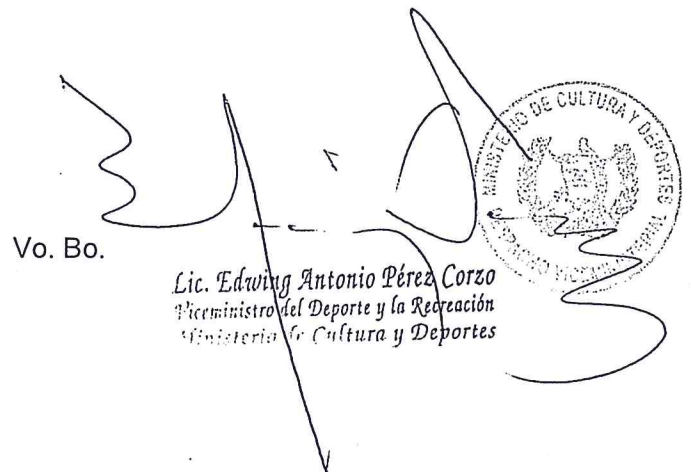 MINISTERIO DE CULTURA Y DEPORTES
DESPACHO VICEMINISTERIAL
Vo. Bo.
Lic. Edwing Antonio Pérez Corzo
Viceministro del Deporte y la Recreación
Ministerio de Cultura y Deportes